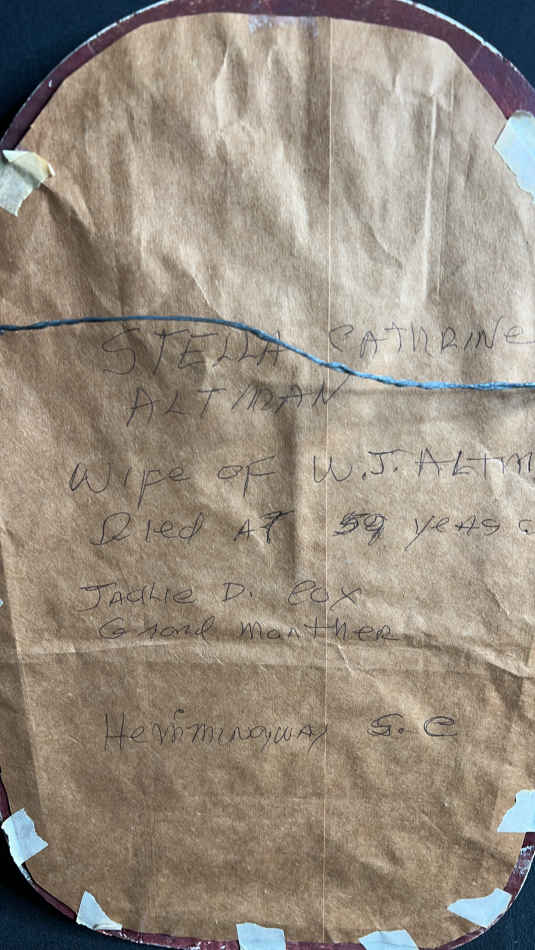 STELLA CATHRINE
ALTMAN
Wife of W.J. ALTM
Died AT 59 yeAs o
JAckie D. Cox
Grand monther
Hemmingway S.C